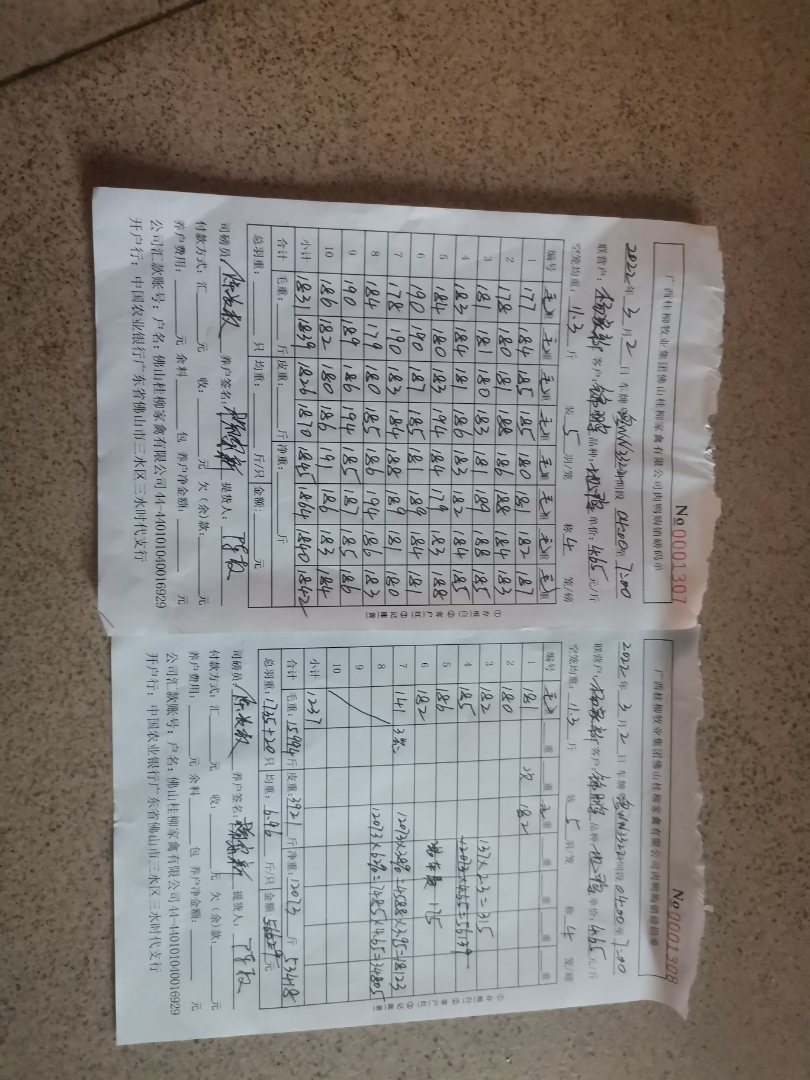 广西桂柳牧业集团佛山桂柳家禽有限公司肉鸭购销磅码单
No 0001307
2022年 3月 2日 车牌 时段 04:00至 7:00
联营户: 客户: 品种: 单价: 4.65 元/斤
空笼均重: 11.3 斤 装 5 羽/笼 称 4 笼/磅
编号 毛重 毛重 毛重 毛重 毛重 毛重 毛重 毛重
1 177 184 185 185 180 181 182 187
2 178 180 181 188 186 188 184 183
3 181 181 180 183 181 189 188 185
4 183 184 181 186 183 182 184 185
5 184 180 183 194 184 179 183 188
6 190 190 187 185 181 189 184 181
7 178 190 183 184 188 189 181 180
8 184 179 180 185 186 194 186 183
9 190 189 186 194 185 187 185 186
10 186 182 180 186 191 186 183 184
小计 1831 1839 1826 1870 1845 1864 1840 1842
合计 毛重: 斤 皮重: 斤 净重: 斤
总羽重: 只 均重: 斤/只 金额: 元
司磅员: 养户签名: 提货人:
付款方式: 汇 元 收: 元 欠(余)款: 元
养户费用: 元 余料 包 养户净金额: 元
公司汇款账号: 户名: 佛山桂柳家禽有限公司 44-440101040016929
开户行: 中国农业银行广东省佛山市三水区三水时代支行
①存根:白 ②客户:红 ③记账:黄
广西桂柳牧业集团佛山桂柳家禽有限公司肉鸭购销磅码单
No 0001308
2022年 3月 2日 车牌 时段 04:00至 7:00
联营户: 客户: 品种: 单价: 4.65 元/斤
空笼均重: 11.3 斤 装 5 羽/笼 称 4 笼/磅
编号 毛重 重 重 重 重 重 重
1 181 次 182
2 180
3 182 137×2.3=315
4 185 12073×4.65=56139
5 186
6 182 175
7 141 3笼 12073×38%=4588×3.95=18123
8 12073×62%=7485×4.65=34805
9
10
小计 1237
合计 毛重: 15994 斤 皮重: 3921 斤 净重: 12073 斤 53448
总羽重: 1735+20 只 均重: 6.96 斤/只 金额: 元
司磅员: 养户签名: 提货人:
付款方式: 汇 元 收: 元 欠(余)款: 元
养户费用: 元 余料 包 养户净金额: 元
公司汇款账号: 户名: 佛山桂柳家禽有限公司 44-440101040016929
开户行: 中国农业银行广东省佛山市三水区三水时代支行
①存根:白 ②客户:红 ③记账:黄